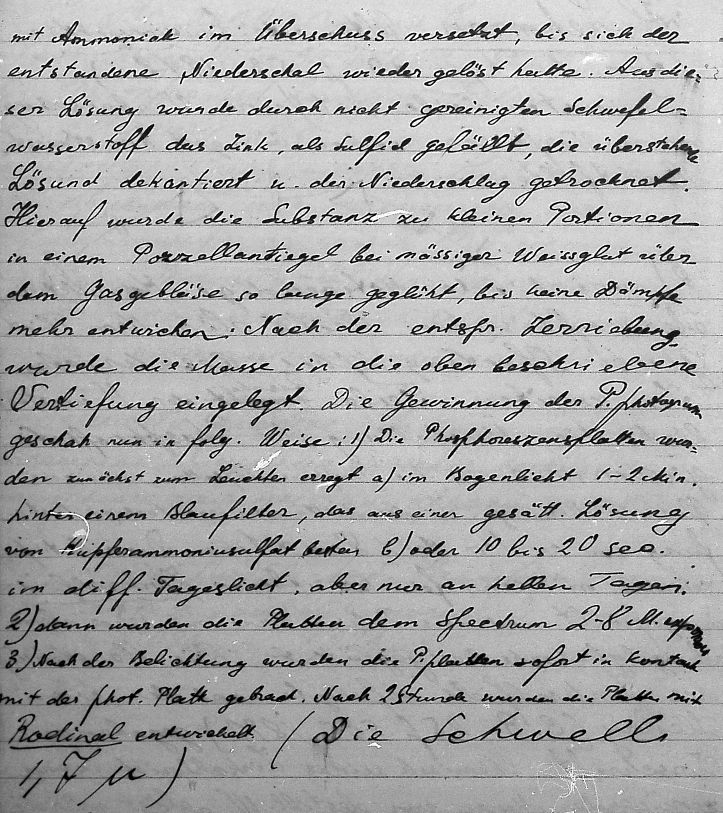 mit Ammoniak im Überschuss versetzt, bis sich der
entstandene Niederschal wieder gelöst hatte. Aus die-
ser Lösung wurde durch nicht gereinigten Schwefel=
wasserstoff das Zink, als Sulfid gefällt, die überstehende
Lösund dekantiert u. der Niederschlag getrocknet.
Hierauf wurde die Substanz zu kleinen Portionen
in einem Porzellantiegel bei mässiger Weissglut über
dem Gasgebläse so lange geglüht, bis keine Dämpfe
mehr entwichen. Nach der entspr. Zerreibung
wurde die Masse in die oben beschriebene
Vertiefung eingelegt. Die Gewinnung der P. photogramm
geschah nun in folg. Weise: 1) Die Phosphoreszensplatten wur=
den zunächst zum Leuchten erregt a) im Bogenlicht 1-2 Min.
hinter einem Blaufilter, das aus einer gesätt. Lösung
von Kupferammoniusulfat b) oder 10 bis 20 sec.
im diff. Tageslicht, aber nur an hellen Tagen.
2) dann wurden die Platten dem Spectrum 2-8 M.
3) Nach der Belichtung wurden die P. platten sofort in Kontakt
mit der phot. Platte gebrach. Nach 2 Stunde wurden die Platten mit
Rodinal entwickelt (Die Schwell
1,7 µ)